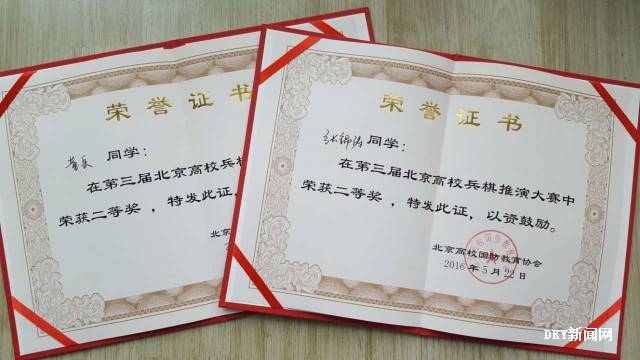 荣誉证书
同学：
在第三届北京高校兵棋
荣获二等奖，特发此证，
北京
荣誉证书
张锦涛 同学：
在第三届北京高校兵棋推演大赛中
荣获二等奖，特发此证，以资鼓励。
北京高校国防教育协会
2016年5月22日
DKY新闻网